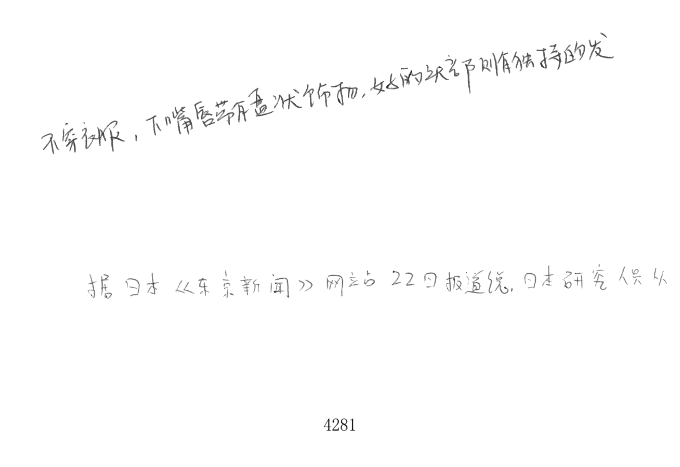 不穿衣服，下嘴唇带有盘状饰物，她的头部则有独特的发
据日本《东京新闻》网站22日报道说，日本研究人员从
4281